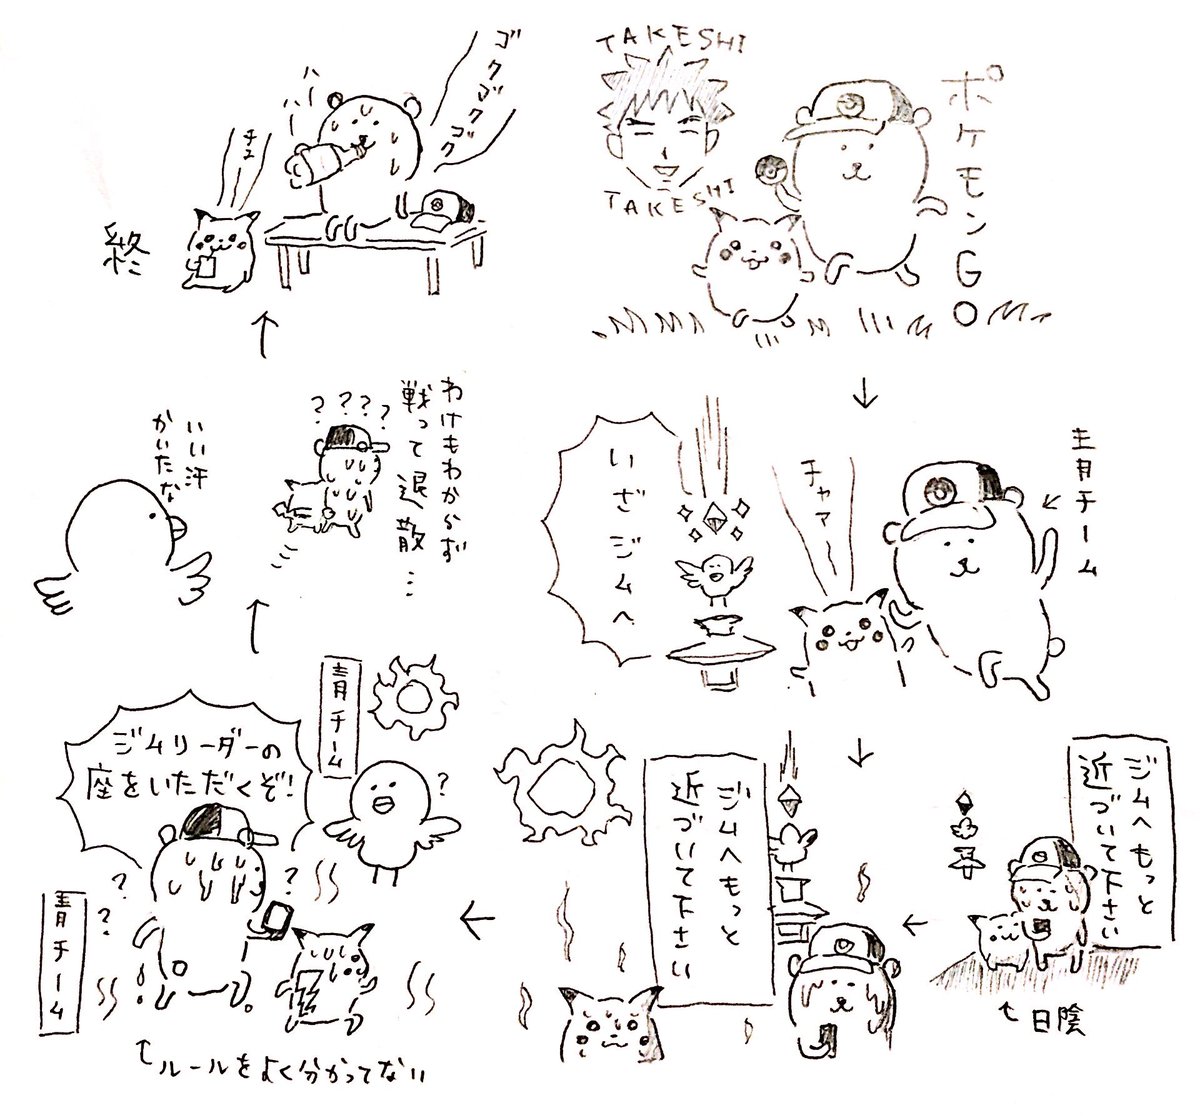 ポケモンGO
TAKESHI
TAKESHI
青チーム
チャァ〜
いざジムへ
ジムへもっと
近づいて下さい
日陰
ジムへもっと
近づいて下さい
青チーム
ジムリーダーの
座をいただくぞ!
?
?
?
?
青チーム
ルールをよく分かってない
わけもわからず
戦って退散…
????
いい汗
かいたな
ゴクゴクゴク
ハーハー
チュ
終